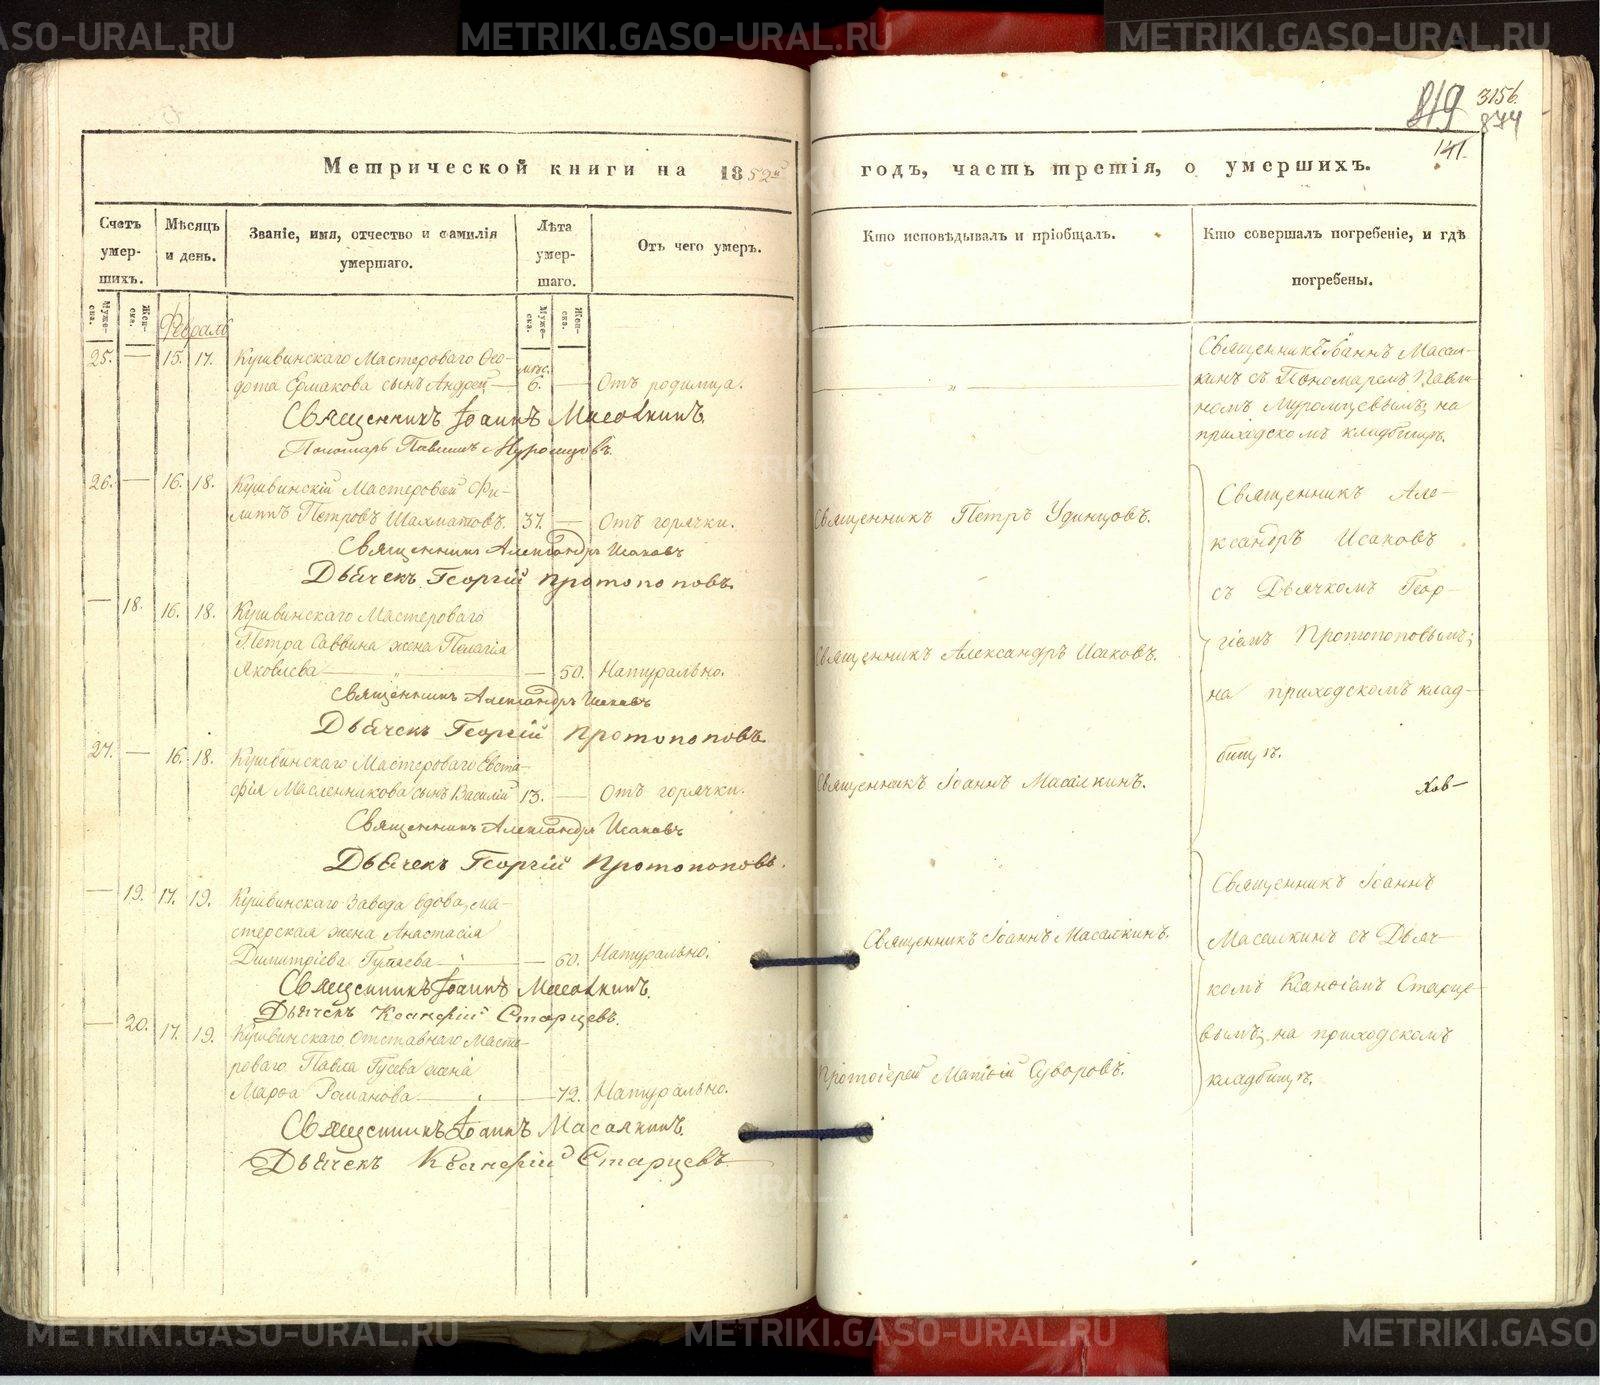 METRIKI.GASO-URAL.RU
819 3156.
874
141.
Метрической книги на 1852й годъ, часть третія, о умершихъ.
Счетъ умер-шихъ.
Мѣсяцъ и день.
Званіе, имя, отчество и фамилія умершаго.
Лѣта умер-шаго.
Отъ чего умеръ.
Кто исповѣдывалъ и пріобщалъ.
Кто совершалъ погребеніе, и гдѣ погребены.
Муже-ска.
Жен-ска.
Муже-ска.
Жен-ска.
Февраль
25. — 15. 17. Кушвинскаго Мастероваго Ѳео-
дота Ермакова сынъ Андрей — мѣс. 6. — Отъ родимца.
Священникъ Іоаннъ Масалкинъ.
Пономарь Павлинъ Муромцовъ.
Священникъ Іоаннъ Масал-
кинъ съ Пономаремъ Павли-
номъ Муромцевымъ; на
приходскомъ кладбищѣ.
26. — 16. 18. Кушвинскій Мастеровой Фи-
липпъ Петровъ Шахматовъ. 37. — Отъ горячки.
Священникъ Петръ Удинцовъ.
Священникъ Александръ Исаковъ
Дьячекъ Георгій Протопоповъ.
— 18. 16. 18. Кушвинскаго Мастероваго
Петра Саввина жена Пелагія
Яковлева — — 50. Натурально.
Священникъ Александръ Исаковъ.
Священникъ Александръ Исаковъ
Дьячекъ Георгій Протопоповъ.
27. — 16. 18. Кушвинскаго Мастероваго Евста-
фія Масленникова сынъ Василій 13. — Отъ горячки.
Священникъ Іоаннъ Масалкинъ.
Священникъ Александръ Исаковъ
Дьячекъ Георгій Протопоповъ.
Священникъ Але-
ксандръ Исаковъ
съ Дьячкомъ Геор-
гіемъ Протопоповымъ;
на приходскомъ клад-
бищѣ.
— 19. 17. 19. Кушвинскаго Завода вдова, ма-
стерская жена Анастасія
Димитріева Гупяева — — 60. Натурально.
Священникъ Іоаннъ Масалкинъ.
Священникъ Іоаннъ Масалкинъ.
Дьячекъ Ксанфій Старцевъ.
— 20. 17. 19. Кушвинскаго Отставнаго Масте-
роваго Павла Гусева жена
Марѳа Романова — — 72. Натурально.
Протоіерей Матѳій Суворовъ.
Священникъ Іоаннъ Масалкинъ.
Дьячекъ Ксанфій Старцевъ
Священникъ Іоаннъ
Масалкинъ съ Дьяч-
комъ Ксанфіемъ Старце-
вымъ; на приходскомъ
кладбищѣ.